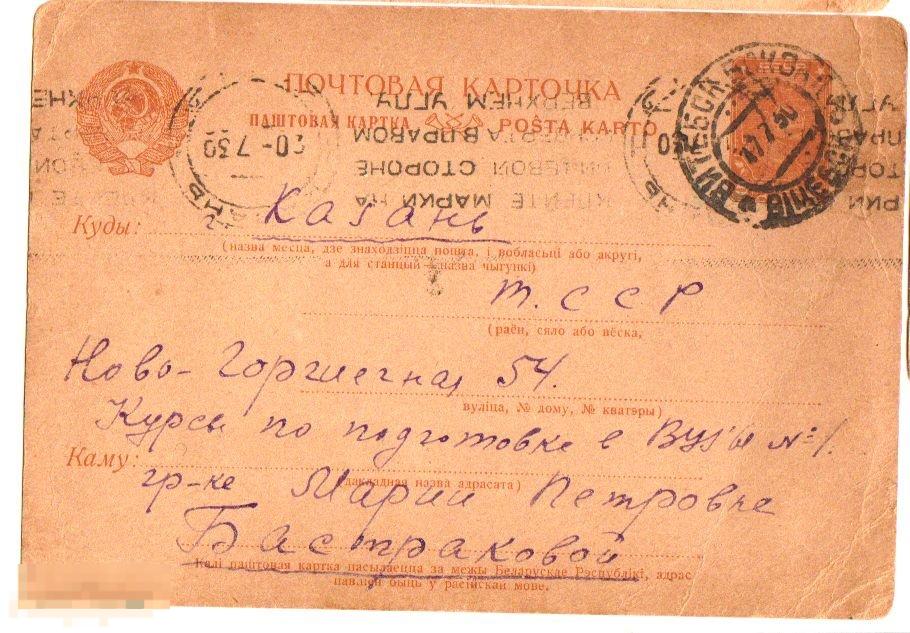 ПОЧТОВАЯ КАРТОЧКА
ПАШТОВАЯ КАРТКА POŜTA KARTO
КЛЕЙТЕ МАРКИ НА
ЛИЦЕВОЙ СТОРОНЕ
В ПРАВОМ
ВЕРХНЕМ УГЛУ
20-7.30
ВИТЕБСК ВОКЗАЛ
17.7.30
Куды: Казань
(назва месца, дзе знаходзіцца пошта, і вобласьці або акругі,
а для станцый—назва чыгункі)
Т. С С Р
(раён, сяло або вёска,
Ново-Горшечная 54.
вуліца, № дому, № кватэры)
Курсы по подготовке в ВУЗ'ы № 1.
Каму:
(дакладная назва адрасата)
гр-ке Марии Петровне
Бастраковой
Калі паштовая картка пасылаецца за межы Беларускае Рэспублікі, адрас
павінен быць у расійскай мове.